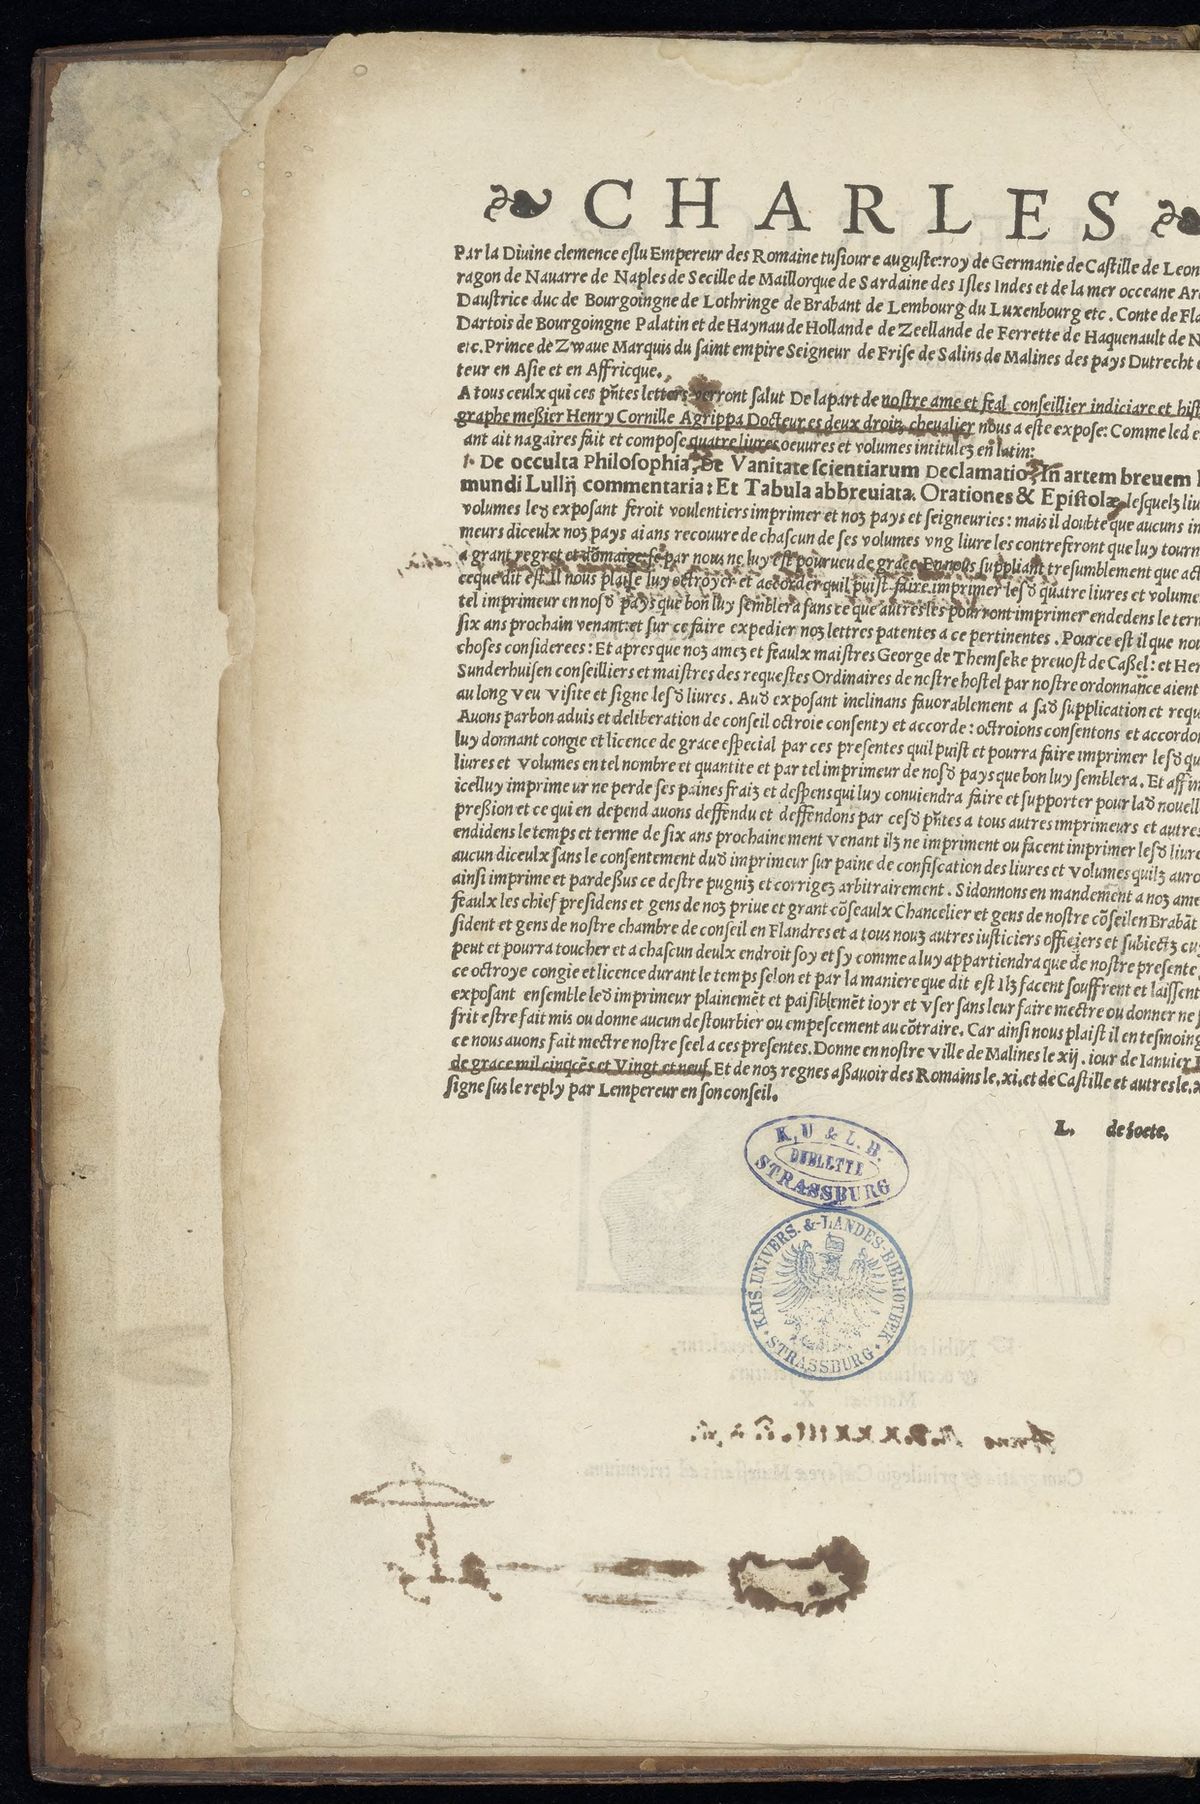 ❧ CHARLES ❧
Par la Diuine clemence eslu Empereur des Romaine tusioure auguste:roy de Germanie de Castille de Leon
ragon de Nauarre de Naples de Secille de Maillorque de Sardaine des Isles Indes et de la mer occeane Ar
Daustrice duc de Bourgoingne de Lothringe de Brabant de Lembourg du Luxenbourg etc. Conte de Fla
Dartois de Bourgoingne Palatin et de Haynau de Hollande de Zeellande de Ferrette de Haquenault de N
etc. Prince de Zwaue Marquis du saint empire Seigneur de Frise de Salins de Malines des pays Dutrecht
teur en Asie et en Affricque.
A tous ceulx qui ces pn̄tes letters verront salut De lapart de nostre ame et feal conseillier indiciare et hist
graphe meßier Henry Cornille Agrippa Docteur es deux droitz cheualier nous a este expose: Comme led e
ant ait nagaires fait et compose quatre liures oeuures et volumes intitulez en latin:
De occulta Philosophia, De Vanitate scientiarum Declamatio, In artem breuem
mundi Lullij commentaria: Et Tabula abbreuiata. Orationes & Epistolæ, lesquelz liu
volumes led exposant feroit voulentiers imprimer et noz pays et seigneuries: mais il doubte que aucuns in
meurs diceulx noz pays ai ans recouure de chascun de ses volumes vng liure les contreferont que luy tourn
a grant regret et dōmaige se par nous ne luy est pourueu de grace En nous suppliant tresumblement que act
ceque dit est Il nous plaise luy octroyer et accorder quil puist faire imprimer lesd quatre liures et volume
tel imprimeur en nosd pays que bon luy semblera sans ce que autres les pourront imprimer endedens le tern
six ans prochain venant: et sur ce faire expedier noz lettres patentes a ce pertinentes. Pource est il que nou
choses considerees: Et apres que noz amez et feaulx maistres George de Themseke preuost de Caßel: et Her
Sunderhuisen conseilliers et maistres des requestes Ordinaires de nostre hostel par nostre ordonnance aient
au long veu visite et signe lesd liures. Aud exposant inclinans fauorablement a sad supplication et requ
Auons parbon aduis et deliberation de conseil octroie consenty et accorde: octroions consentons et accordon
luy donnant congie et licence de grace especial par ces presentes quil puist et pourra faire imprimer lesd qu
liures et volumes en tel nombre et quantite et par tel imprimeur de nosd pays que bon luy semblera. Et affin
icelluy imprimeur ne perde ses paines fraiz et despens qui luy conuiendra faire et supporter pour lad nouell
preßion et ce qui en depend auons deffendu et deffendons par cesd pn̄tes a tous autres imprimeurs et autres
endidens le temps et terme de six ans prochainement venant ilz ne impriment ou facent imprimer lesd liure
aucun diceulx sans le consentement dud imprimeur sur paine de confiscation des liures et volumes quilz auro
ainsi imprime et pardeßus ce destre pugniz et corrigez arbitrairement. Si donnons en mandemēnt a noz ame
feaulx les chief presidens et gens de noz priue et grant cōseaulx Chancelier et gens de nostre cōseil en Brabāt
sident et gens de nostre chambre de conseil en Flandres et a tous nouz autres iusticiers officiers et subiectz cu
peut et pourra toucher et a chascun deulx endroit soy et sy comme a luy appartiendra que de nostre presente
ce octroye congie et licence durant le temps selon et par la maniere que dit est Ilz facent souffrent et laissent
exposant ensemble led imprimeur plainemēt et paisiblemēt ioyr et vser sans leur faire mectre ou donner ne
frit estre fait mis ou donne aucun destourbier ou empescement au cōtraire. Car ainsi nous plaist il en tesmoing
ce nous auons fait mectre nostre seel a ces presentes. Donne en nostre ville de Malines le xij. iour de Ianuier
de grace mil cinqcēs et Vingt et neuf. Et de noz regnes aßauoir des Romains le. xi. et de Castille et autres le. x
signe sus le reply par Lempereur en son conseil.
L. de soete.
K, U & L. B.
DUBLETTE
STRASSBURG
KAIS. UNIVERS. & LANDES-BIBLIOTHEK
STRASSBURG